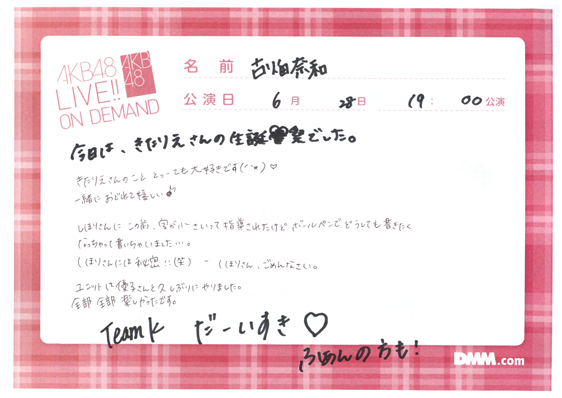 AKB48
LIVE!!
ON DEMAND
AKB
48
名前 古畑奈和
公演日 6月 28日 19:00公演
今日は、きたりえさんの生誕祭でした。
きたりえさんのこと とっっても大好きです(^^)♡
一緒におどれて嬉しい♪
しほりさんに この前、字が小さいって指摘されたけど ボールペンでどうしても書きたく
なっちゃって書いちゃいました…。
(しほりさんには秘密!!(笑) しほりさん、ごめんなさい。
ユニットは優子さんと久しぶりにやりました。
全部全部楽しかったです。
Team K だーいすき♡
ふぁんの方も!
DMM.com